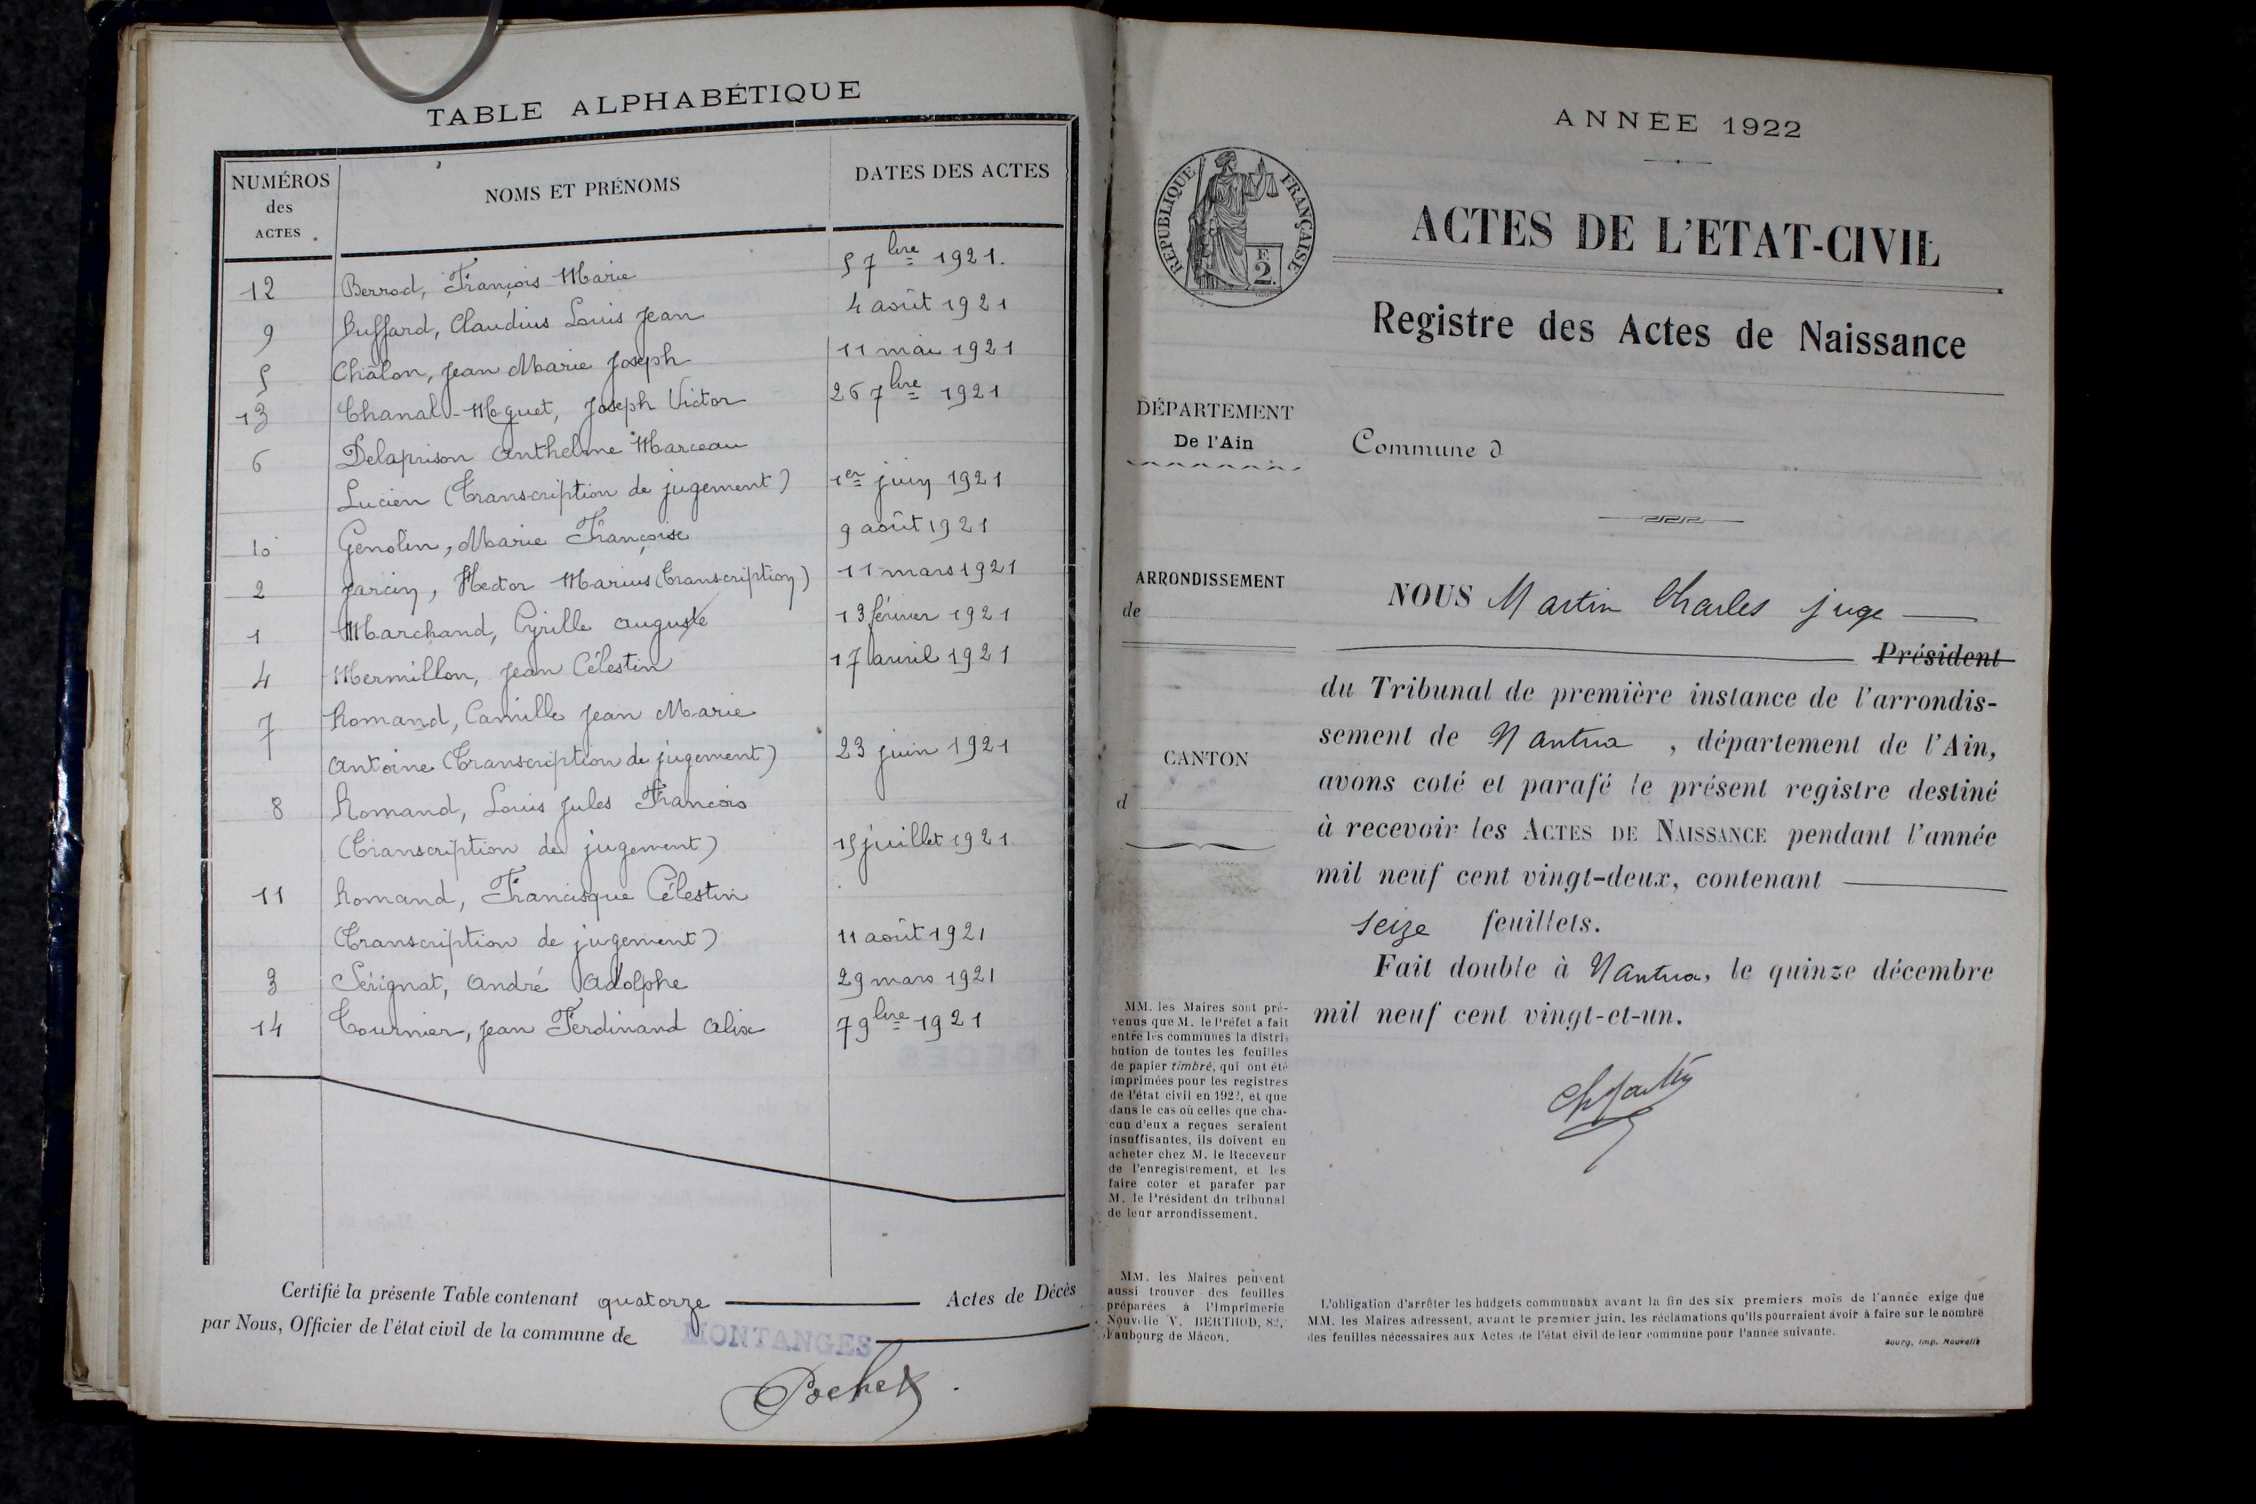 TABLE ALPHABÉTIQUE
NUMÉROS
des
ACTES
NOMS ET PRÉNOMS
DATES DES ACTES
12 Berrod, François Marie 5 7bre 1921.
9 Buffard, Claudius Louis Jean 4 août 1921
5 Châlon, Jean Marie Joseph 11 mai 1921
13 Chanal-Moquet, Joseph Victor 26 7bre 1921
6 Delaprison Anthelme Marceau
Lucien (Transcription de jugement) 1er juin 1921
10 Genolin, Marie Françoise 9 août 1921
2 Jarcin, Hector Marius (Transcription) 11 mars 1921
1 Marchand, Cyrille Auguste 13 février 1921
4 Mermillon, Jean Célestin 17 avril 1921
7 Romand, Camille Jean Marie
Antoine (Transcription de jugement) 23 juin 1921
8 Romand, Louis Jules François
(Transcription de jugement) 15 juillet 1921
11 Romand, Francisque Célestin
(Transcription de jugement) 11 août 1921
3 Sérignat, André Adolphe 29 mars 1921
14 Tournier, Jean Ferdinand Alix 7 9bre 1921
Certifié la présente Table contenant quatorze Actes de Décès
par Nous, Officier de l'état civil de la commune de MONTANGES
Pochet
ANNÉE 1922
RÉPUBLIQUE FRANÇAISE
F.
2
ACTES DE L'ETAT-CIVIL
Registre des Actes de Naissance
DÉPARTEMENT
De l'Ain
Commune d
ARRONDISSEMENT
de
CANTON
d
NOUS Martin Charles juge
Président
du Tribunal de première instance de l'arrondis-
sement de Nantua, département de l'Ain,
avons coté et parafé le présent registre destiné
à recevoir les ACTES DE NAISSANCE pendant l'année
mil neuf cent vingt-deux, contenant
seize feuillets.
Fait double à Nantua, le quinze décembre
mil neuf cent vingt-et-un.
Ch Martin
MM. les Maires sont pré-
venus que M. le Préfet a fait
entre les communes la distri-
bution de toutes les feuilles
de papier timbré, qui ont été
imprimées pour les registres
de l'état civil en 1922, et que
dans le cas où celles que cha-
cun d'eux a reçues seraient
insuffisantes, ils doivent en
acheter chez M. le Receveur
de l'enregistrement, et les
faire coter et parafer par
M. le Président du tribunal
de leur arrondissement.
MM. les Maires peuvent
aussi trouver des feuilles
préparées à l'Imprimerie
Nouvelle V. BERTHOD, 82,
Faubourg de Mâcon.
L'obligation d'arrêter les budgets communaux avant la fin des six premiers mois de l'année exige que
MM. les Maires adressent, avant le premier juin, les réclamations qu'ils pourraient avoir à faire sur le nombre
des feuilles nécessaires aux Actes de l'état civil de leur commune pour l'année suivante.
Bourg, Imp. Nouvelle